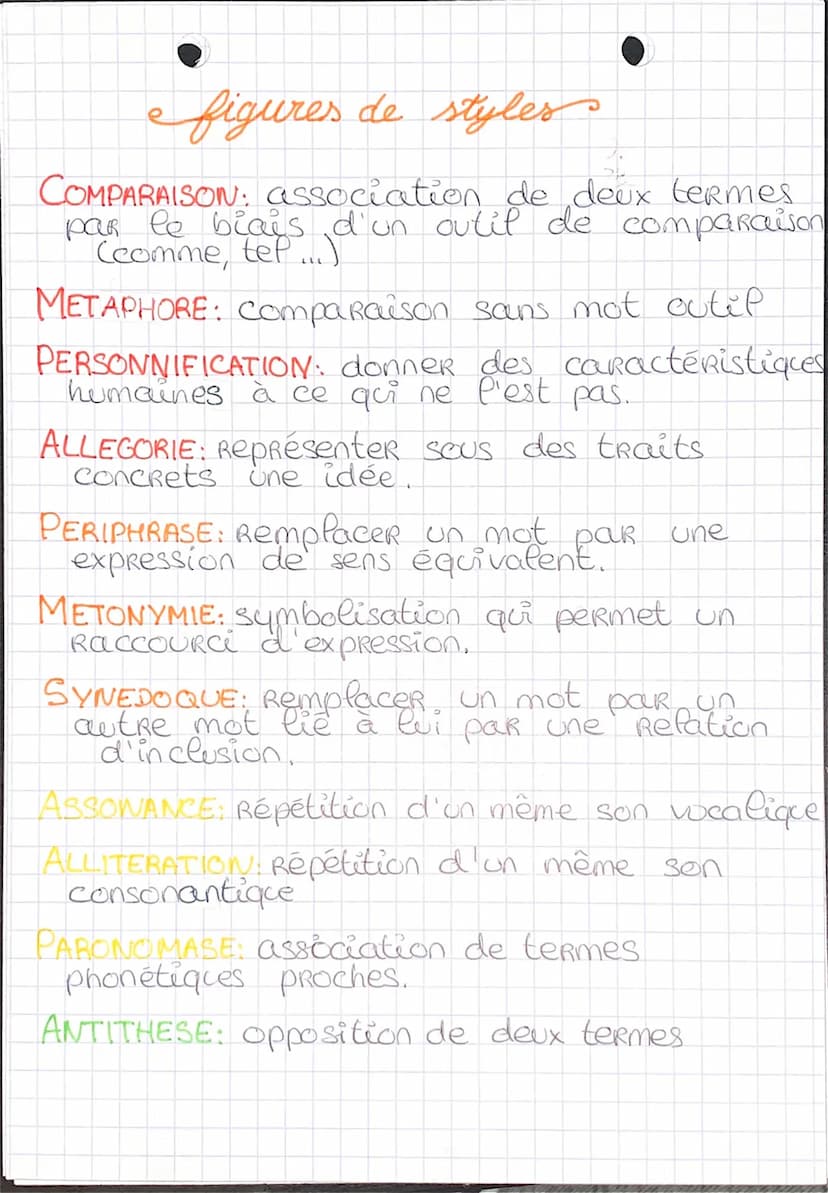 figures de styles
COMPARAISON: association de deux termes
par le biais d'un outil de comparaison
(comme, tel ...)
METAPHORE: comparaison sans mot outil
PERSONNIFICATION: donner des caractéristiques
humaines à ce qui ne l'est pas.
ALLEGORIE: Représenter sous des traits
concrets une idée.
PERIPHRASE: Remplacer un mot par une
expression de sens équivalent.
METONYMIE: symbolisation qui permet un
raccourci d'expression.
SYNEDOQUE: Remplacer un mot par un
autre mot lié à lui par une relation
d'inclusion.
ASSONANCE: Répétition d'un même son vocalique
ALLITERATION: Répétition d'un même son
consonantique
PARONOMASE: association de termes
phonétiques proches.
ANTITHESE: opposition de deux termes